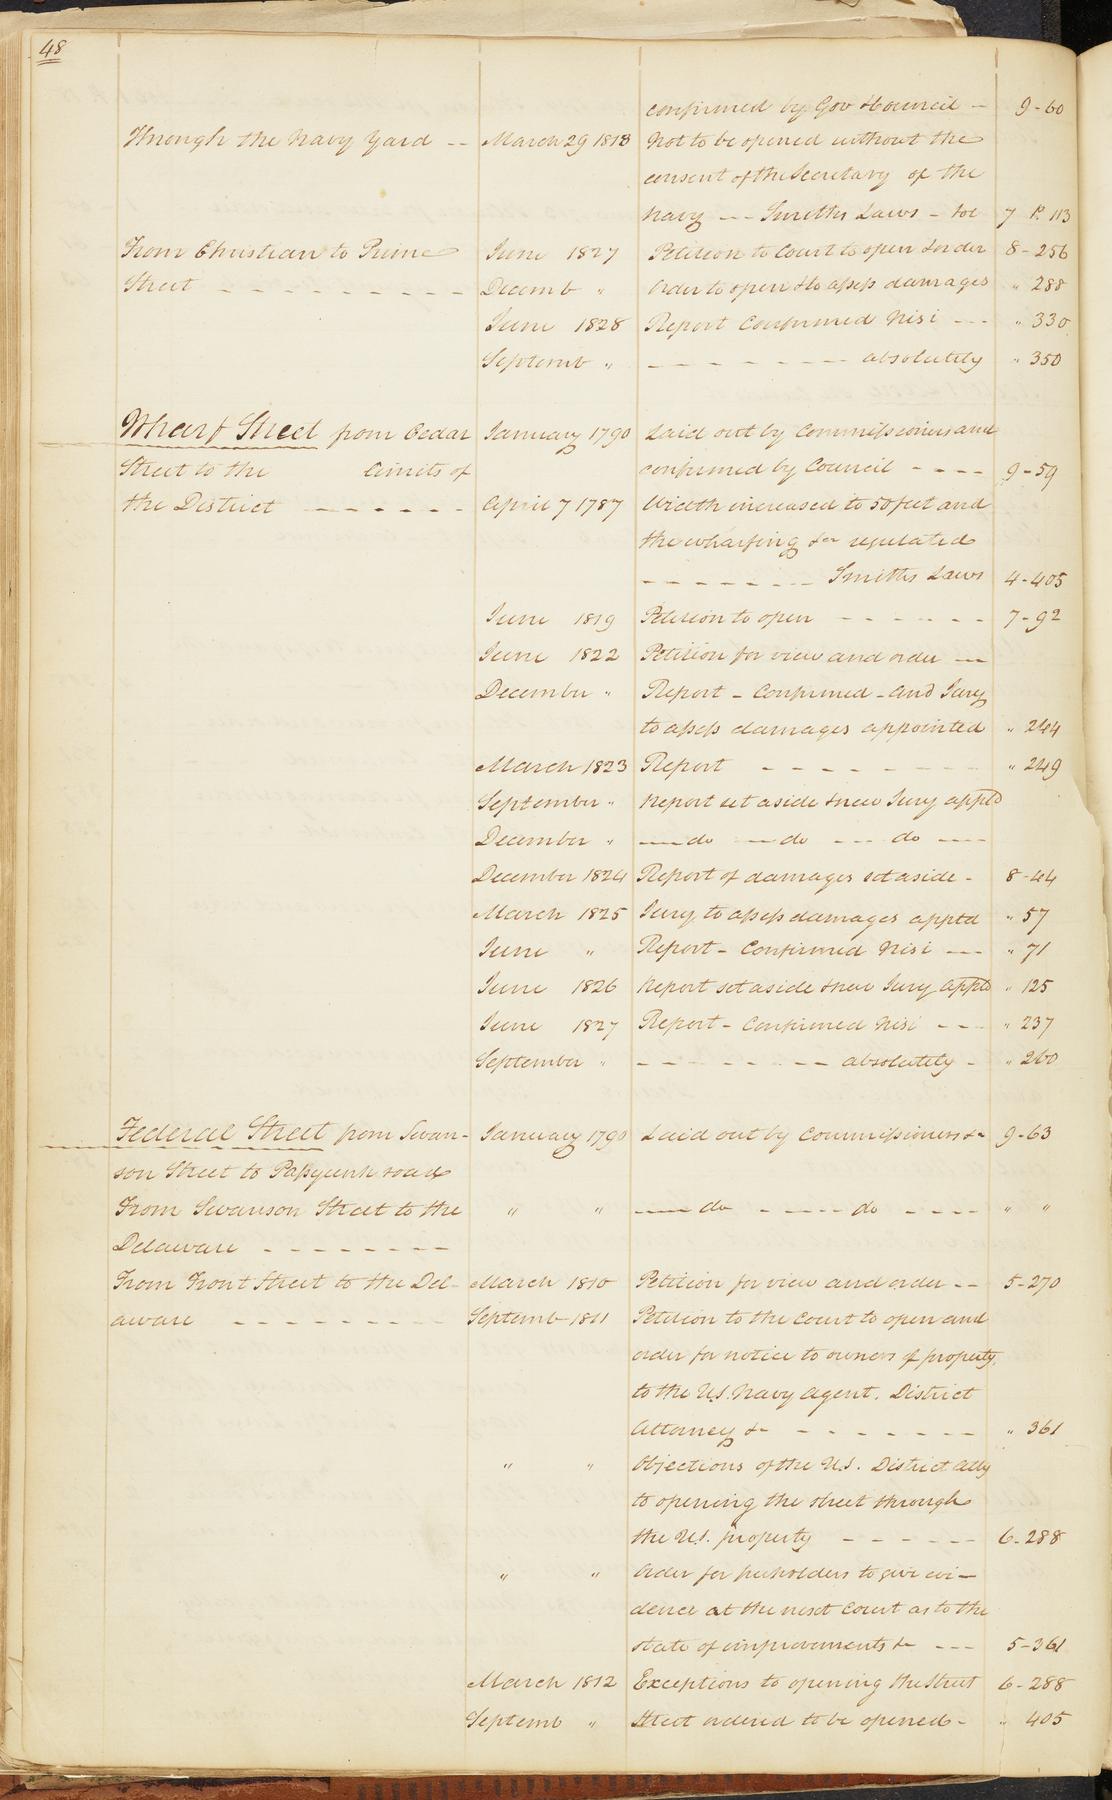 48
confirmed by Gov &Council — 9-60
Through the Navy Yard -- March 29 1818 Not to be opened without the
consent of the Secretary of the
Navy --- Smiths Laws - vol 7 P. 113
From Christian to Prime June 1827 Petition to Court to open &order 8-256
Street - - - - - - - - - Decemb " Order to open &to assess damages " 288
June 1828 Report Confirmed Nisi --- " 330
Septemb " - - - - - - - - absolutely " 350
Wharf Street from Cedar January 1790 Laid out by Commissioners and
Street to the limits of confirmed by Council - - - - 9-59
the District - - - - - - April 7 1787 Width increased to 50 feet and
the wharfing &c regulated
- - - - - - - Smiths Laws 4-405
June 1819 Petition to open - - - - - - 7-92
June 1822 Petition for view and order —
December " Report - Confirmed - and Jury
to assess damages appointed " 244
March 1823 Report - - - - - - " 249
September " Report set aside &new Jury appt'd
December " — do — do --- do ----
December 1824 Report of damages set aside - 8-44
March 1825 Jury to assess damages appt'd " 57
June " Report - Confirmed Nisi --- " 71
June 1826 Report set aside &new Jury appt'd " 125
June 1827 Report - Confirmed Nisi --- " 237
September " - - - - - - - - absolutely - " 260
Federal Street from Swan- January 1790 Laid out by Commissioners &c 9-63
son Street to Passyunk road
From Swanson Street to the " " — do - - - - do - - - - " "
Delaware - - - - - - - -
From Front Street to the Del- March 1810 Petition for view and order -- 5-270
aware - - - - - - - - - Septemb 1811 Petition to the Court to open and
order for notice to owners of property,
to the U.S. Navy Agent, District
Attorney &c - - - - - - - " 361
" " Objections of the U.S. District Atty
to opening the street through
the U.S. property - - - - - - 6-288
" " Order for freeholders to give evi-
dence at the next Court as to the
state of improvements &c --- 5-361
March 1812 Exceptions to opening the Street 6-288
Septemb " Street ordered to be opened - " 405